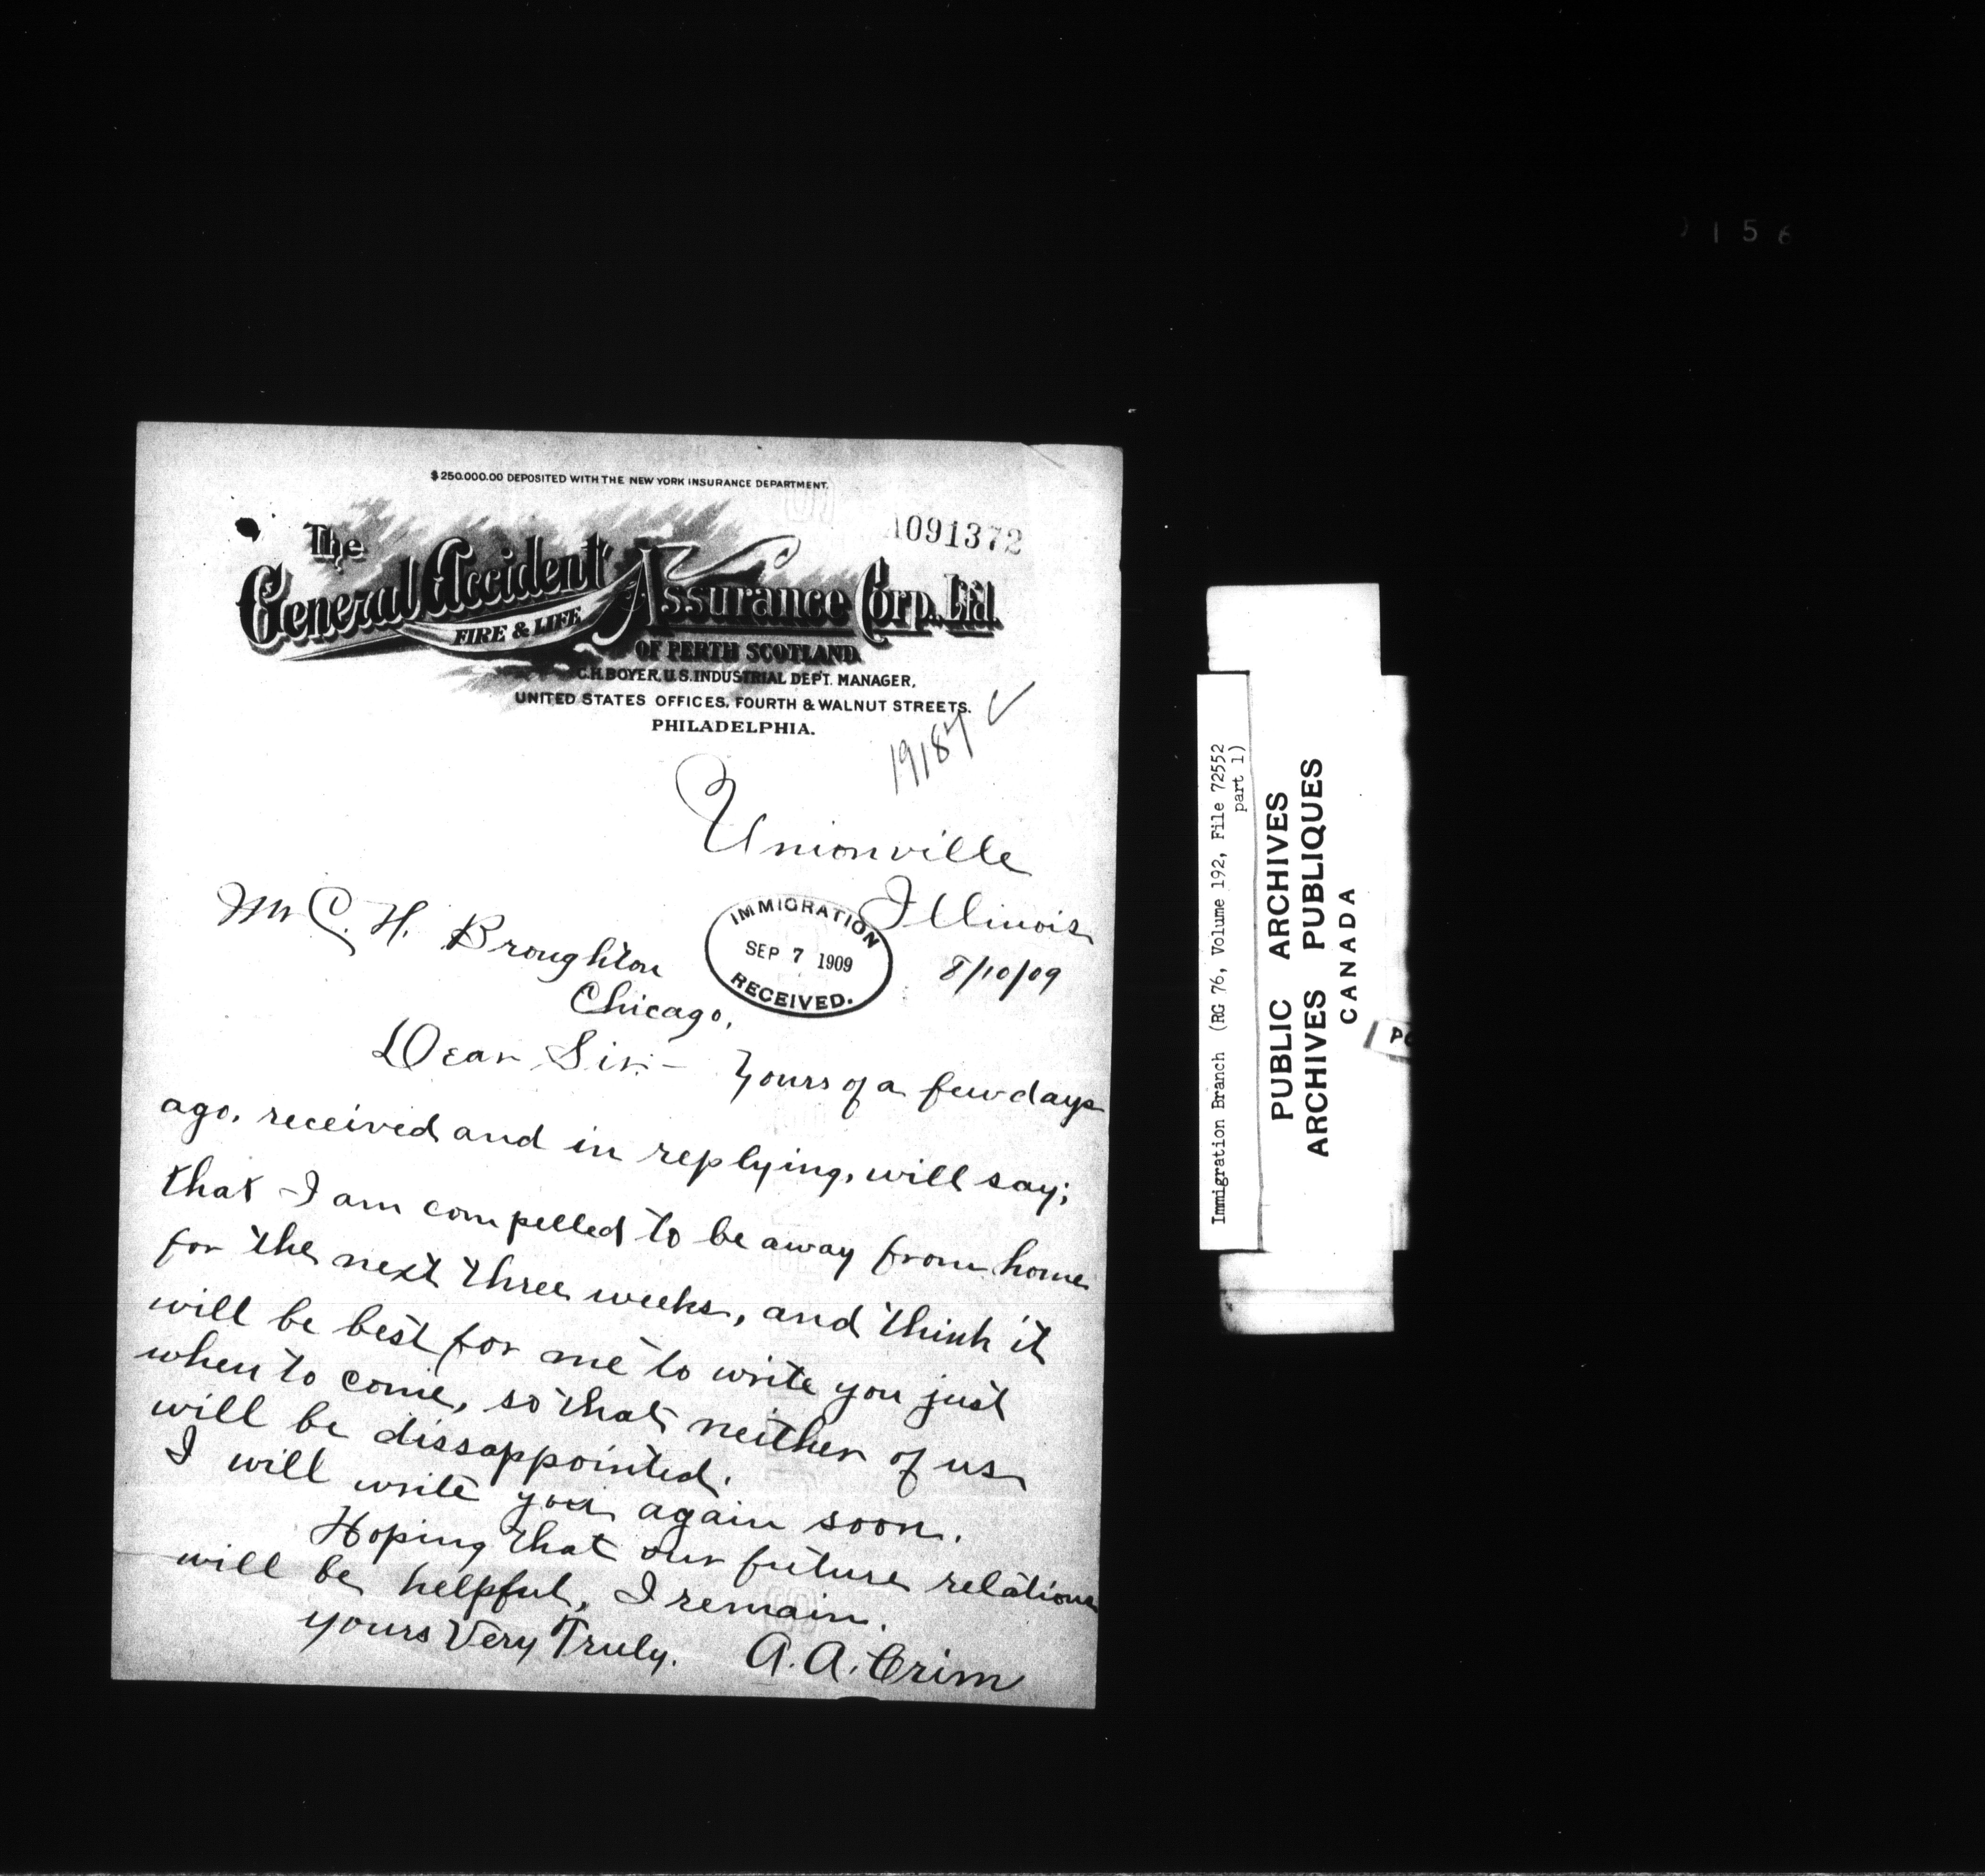 $250.000.00 DEPOSITED WITH THE NEW YORK INSURANCE DEPARTMENT.
1091372
The
General Accident Assurance Corp., Ltd.
FIRE & LIFE
OF PERTH SCOTLAND.
C.H. BOYER, U.S. INDUSTRIAL DEPT. MANAGER,
UNITED STATES OFFICES, FOURTH & WALNUT STREETS.
PHILADELPHIA.
Unionville
Illinois
8/10/09
IMMIGRATION
SEP 7 1909
RECEIVED.
Mr C. H. Broughton
Chicago,
Dear Sir:- Yours of a few days
ago, received and in replying, will say;
that I am compelled to be away from home
for the next three weeks, and think it
will be best for me to write you just
when to come, so that neither of us
will be dissappointed.
I will write you again soon.
Hoping that our future relations
will be helpful, I remain.
Yours Very Truly. A. A. Crim
Immigration Branch (RG 76, Volume 192, File 72552
part 1)
PUBLIC ARCHIVES
ARCHIVES PUBLIQUES
CANADA